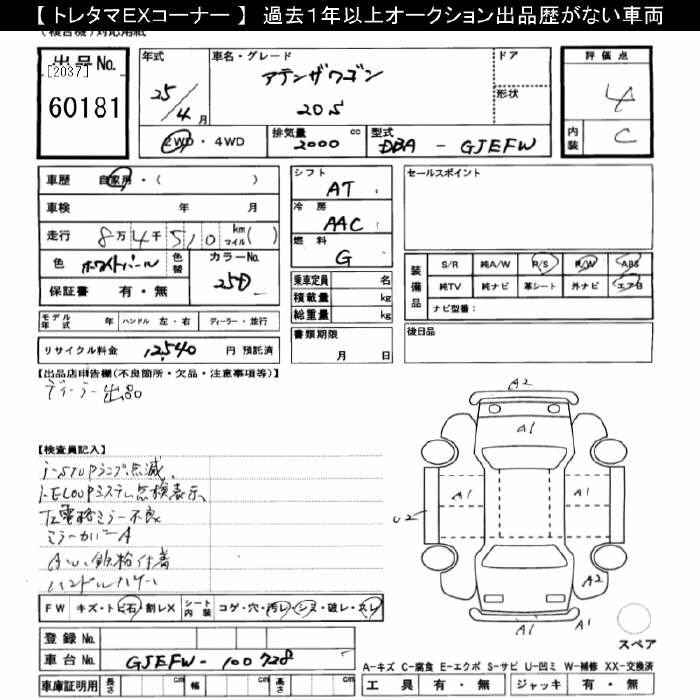 【 トレタマEXコーナー 】 過去１年以上オークション出品歴がない車両
出品No.
[2037]
60181
年式
25/4 月
車名・グレード
アテンザワゴン
20S
ドア
形状
評価点
4
内装
C
2WD・4WD
排気量
2000 cc
型式
DBA - GJEFW
車歴 自家用・( )
車検 年 月
走行 8万4千510 km マイル( )
色 ホワイトパール
色替
カラーNo.
25D
保証書 有・無
シフト
AT
冷房
AAC
燃料
G
乗車定員 名
積載量 kg
総重量 kg
書類期限
月 日
セールスポイント
装備品
S/R 純A/W P/S P/W ABS
純TV 純ナビ 革シート 外ナビ エアB
ナビ型番：
後日品
モデル年式 年 ハンドル 左・右 ディーラー・並行
リサイクル料金 12,540 円 預託済
【出品店申告欄(不良箇所・欠品・注意事項等)】
ディーラー出品
【検査員記入】
i-STOPランプ点滅
i-ELOOPシステム点検表示
左電格ミラー不良
ミラーカバーA
AW、鉄粉付着
ハンドルハゲ
A2
A1
A1
A1
A1
U2
A2
A1
A1
FW キズ・トビ石・割レX シート内装 コゲ・穴・汚レ・シミ・破レ・スレ
登録No.
車台No. GJEFW-100728
車庫証明用 長さ cm 幅 cm 高さ cm
スペア
A-キズ C-腐食 E-エクボ S-サビ U-凹ミ W-補修 XX-交換済
工具 有・無 ジャッキ 有・無